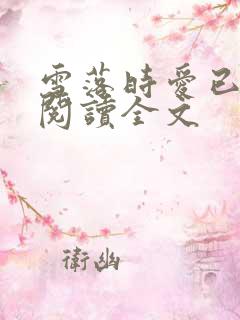 雪落時愛已
閱讀全文
衛幽